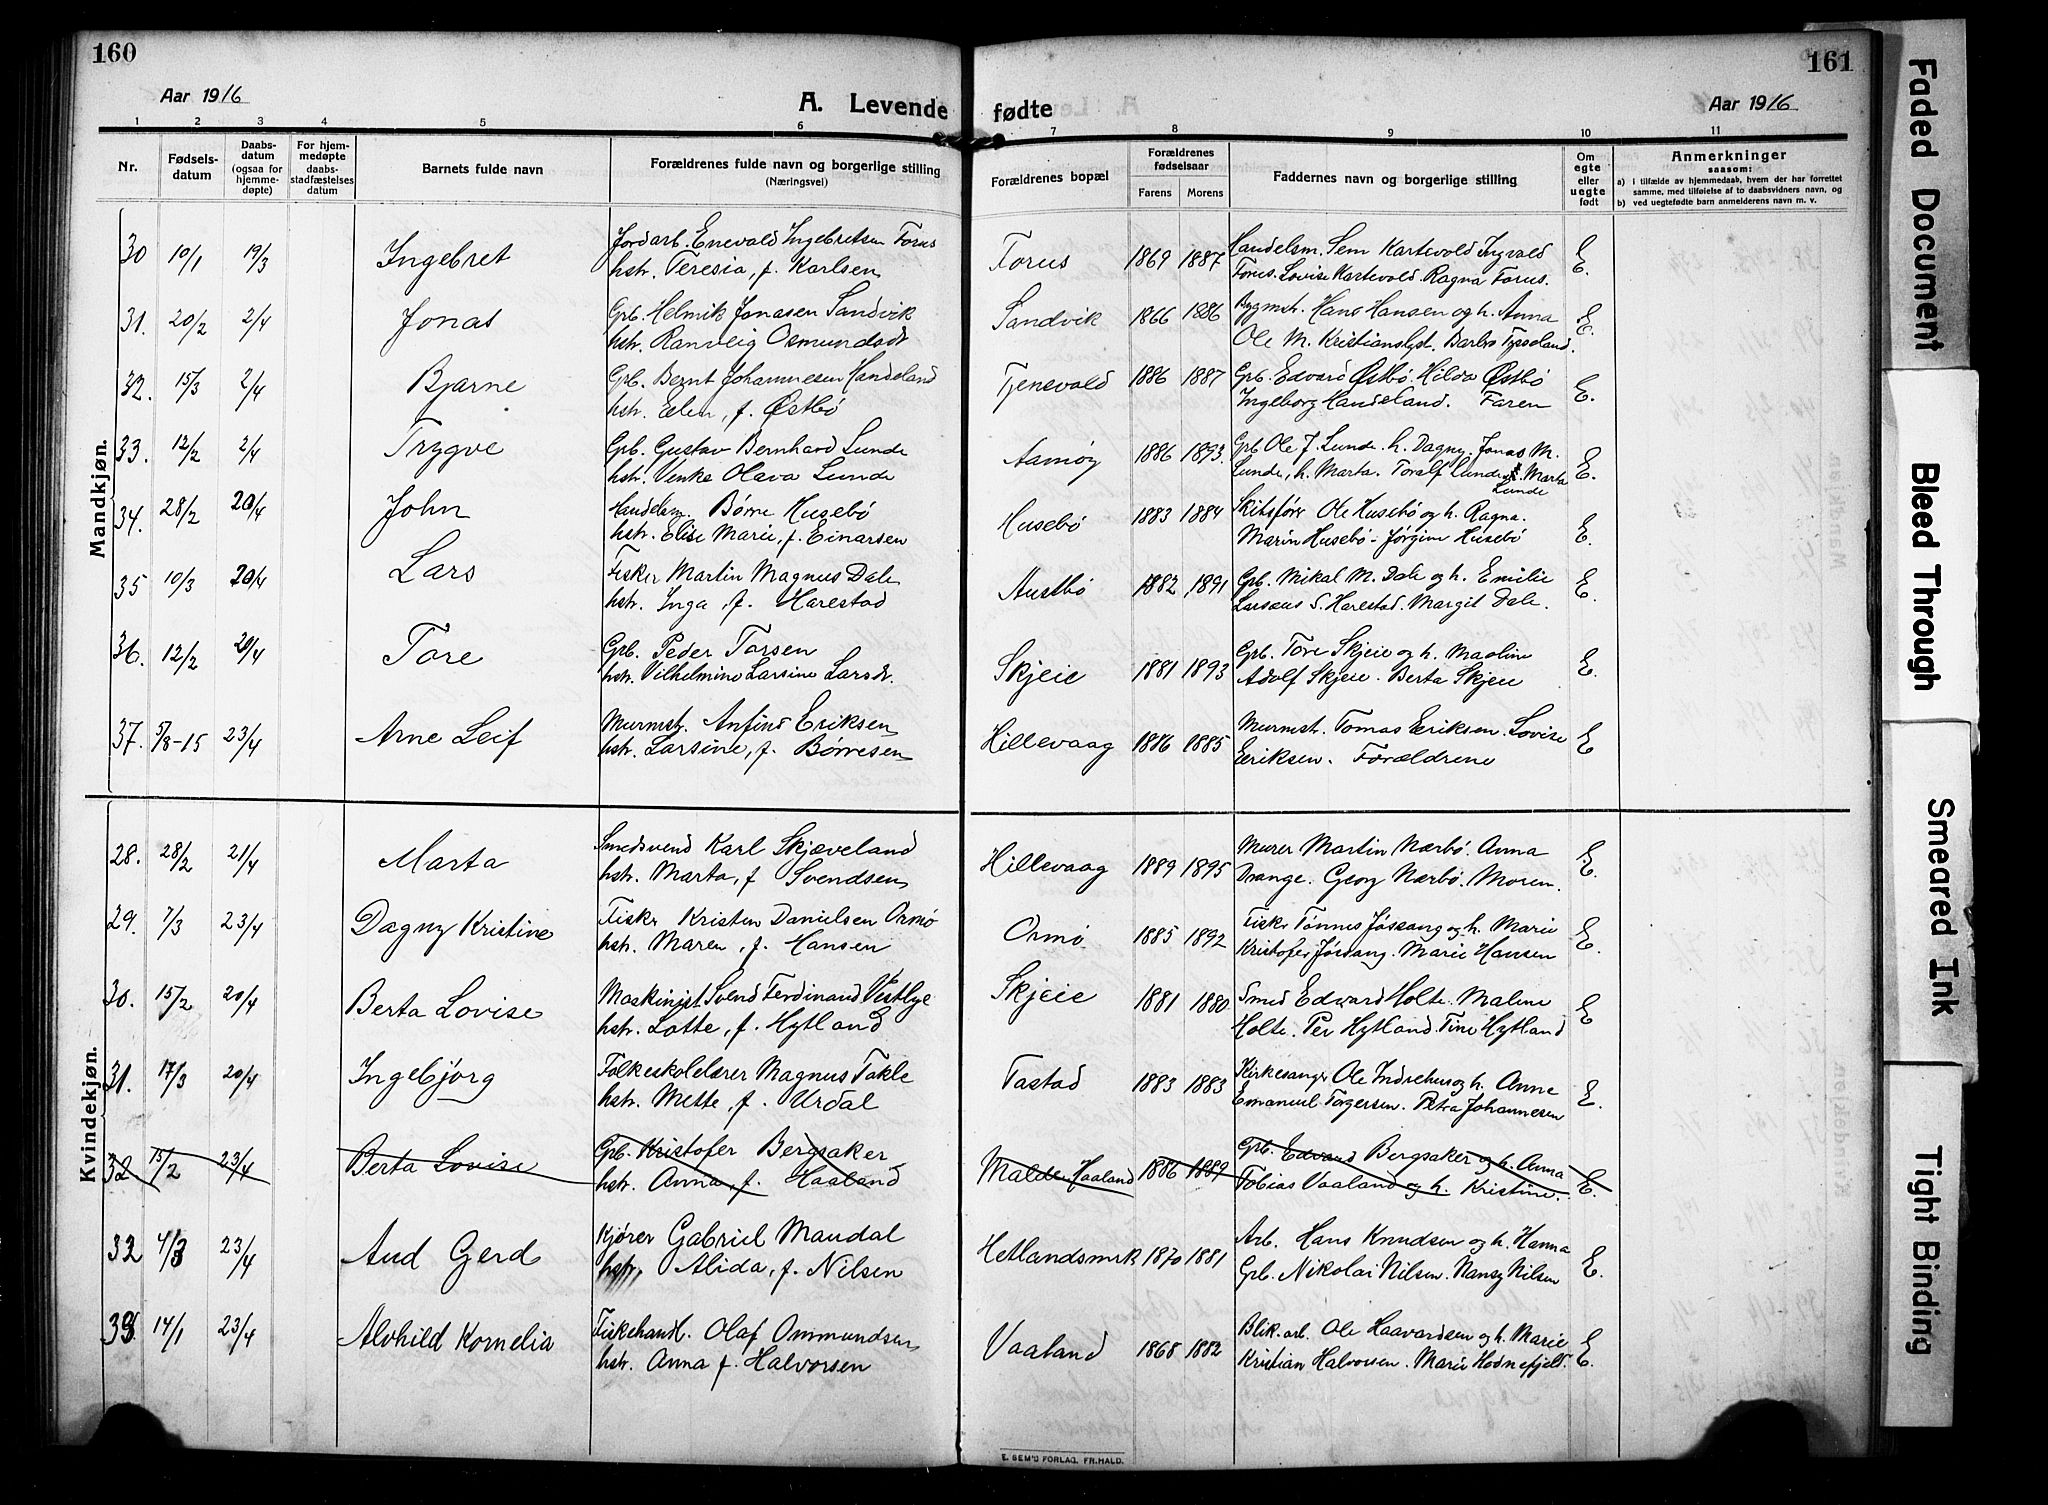 160
Aar 1916
A. Levende
1 2 3 4 5 6
Nr.
Fødsels-
datum
Daabs-
datum
(ogsaa for
hjemme-
døpte)
For hjem-
medøpte
daabs-
stadfæstelses
datum
Barnets fulde navn
Forældrenes fulde navn og borgerlige stilling
(Næringsvei)
Mandkjøn.
30 10/1 19/3 Ingebret
Jordarb. Enevald Ingebretsen Forus
hstr. Teresia, f. Karlsen
31. 20/2 2/4 Jonas
Grb. Helmik Jonasen Sandvik
hstr. Ranveig Osmundsdr
32. 15/3 2/4 Bjarne
Grb. Bernt Johannesen Handeland
hstr. Elen, f. Østbö
33. 12/2 2/4 Trygve
Grb. Gustav Bernhard Lunde
hstr. Venke Olava Lunde
34. 28/2 20/4 John
Handelsm. Børre Husebö
hstr. Elise Marie, f. Einarsen
35 10/3 20/4 Lars
Fisker Martin Magnus Dale
hstr. Inga, f. Harestad
36. 12/2 20/4 Tore
Grb. Peder Torsen
hstr. Vilhelmine Larsine Larsdr.
37. 5/8-15 23/4 Arne Leif
Murmstr. Anfind Eriksen
hstr. Larsine, f. Børresen
Kvindekjøn.
28. 28/2 21/4 Marta
Smedsvend Karl Skjæveland
hstr. Marta, f Svendsen
29. 7/3 23/4 Dagny Kristine
Fisker Kristen Danielsen Ormø
hstr. Maren, f. Hansen
30. 15/2 20/4 Berta Lovise
Maskinist Svend Ferdinand Vestlye
hstr. Lotte, f. Hytland
31. 17/3 20/4 Ingebjörg
Folkeskolelærer Magnus Takle
hstr. Mette, f. Urdal
32 15/2 23/4 Berta Lovise
Grb. Kristofer Bergsaker
hstr. Anna, f. Haaland
32 4/3 23/4 Aud Gerd
Kjører Gabriel Maudal
hstr. Alida, f. Nilsen
33. 14/1 23/4 Alvhild Kornelia
Fiskehandl. Olaf Ommundsen
hstr. Anna f. Halvorsen
161
fødte
Aar 1916
7 8 9 10 11
Forældrenes bopæl
Forældrenes
fødselsaar
Farens Morens
Faddernes navn og borgerlige stilling
Om
egte
eller
uegte
født
Anmerkninger
saasom:
a) i tilfælde av hjemmedaab, hvem der har forrettet
samme, med tilføielse af to daabsvidners navn, og
b) ved uegtefødte barn anmelderens navn m. v.
Forus 1869 1887 Handelsm. Sem Kartevold Ingvald
Forus. Lovise Kartevold Ragna Forus. E.
Sandvik 1866 1886 Bygmstr. Hans Hansen og h. Anna
Ole M. Kristianslyst. Barbro Tysseland. E.
Tjensvold 1886 1887 Grb. Edvard Østbö. Hilda Østbö
Ingeborg Handeland. Faren E.
Aamøy 1886 1893. Grb Ole J. Lunde. h. Dagny. Jonas M.
Lunde, h. Marta. Toralf Lunde. Marta
Lunde E.
Husebö 1883 1884 Skibsfører Ole Husebö og h. Ragna.
Marin Husebö - Jørgine Husebö E.
Austbö 1882 1891 Grb. Mikal M. Dale og h. Emilie
S. Harestad. Margit Dale. E.
Skjeie 1881 1893 Grb. Tore Skjeie og h. Maline
Adolf Skjeie. Berta Skjeie E
Hillevaag 1886 1885 Murmstr. Tomas Eriksen. Lovise
Eriksen. Forældrene E
Hillevaag 1889 1895 Murer Martin Nærbö. Anna
Drange. Georg Nærbö. Moren. E.
Ormø 1885 1892 Fisker Tønnes Jøssang og h. Marie
Kristofer Jøssang. Marie Hansen E.
Skjeie 1881 1880 Smed Edward Holte. Malene
Holte. Per Hytland. Tine Hytland E
Tastad 1883 1883 Kirkesanger Ole Indrehus og h. Anne
Emanuel Torgersen. Petra Johannesen E.
Malde, Haaland 1886 1889 Grb. Edvard Bergsaker og h. Anna
Tobias Vaaland og h. Kristine. E.
Hetlandsmrk 1870 1881 Arb. Hans Knudsen og h. Hanna
Grb. Nikolai Nilsen. Nansy Nilsen E.
Vaaland 1868 1882 Blik. arb. Ole Haavardsen og h. Marie
Kristian Halvorsen. Marie Hodnefjeld. E.
E. SEM'S FORLAG, FR.HALD.
Faded Document
Bleed Through
Smeared Ink
Tight Binding